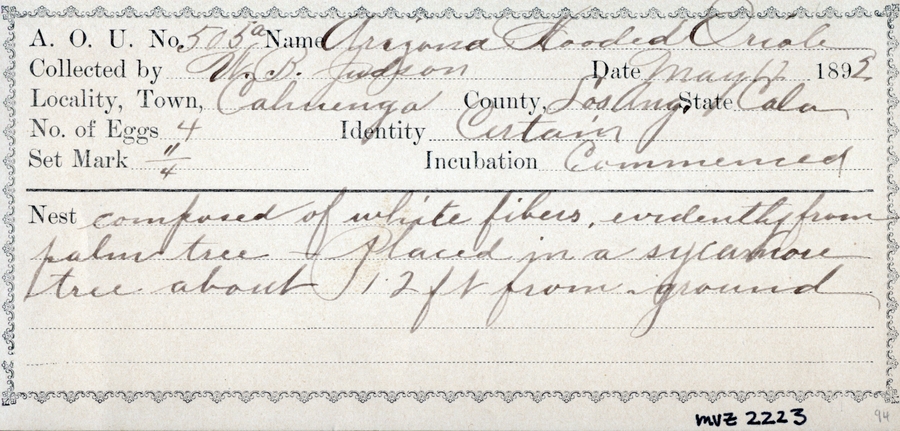 A. O. U. No. 505a Name Arizona Hooded Oriole
Collected by W. B. Judson Date May 12 1893
Locality, Town, Cahuenga County, Los Ang. State Cala
No. of Eggs 4 Identity Certain
Set Mark 11/4 Incubation Commenced
Nest composed of white fibers, evidently from
palm tree - Placed in a sycamore
tree about 12 ft from ground
mvz 2223
94